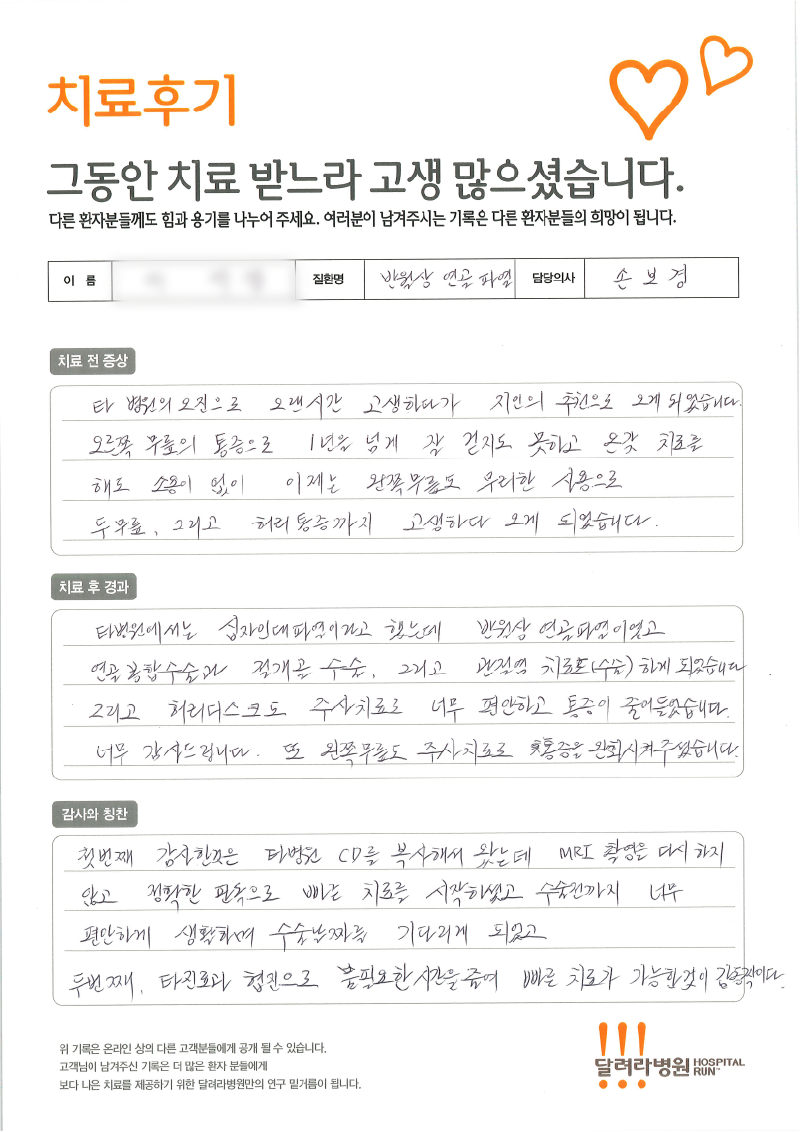 치료후기
그동안 치료 받느라 고생 많으셨습니다.
다른 환자분들께도 힘과 용기를 나누어 주세요. 여러분이 남겨주시는 기록은 다른 환자분들의 희망이 됩니다.
이 름 질환명 반월상 연골 파열 담당의사 손 보 경
치료 전 증상
타 병원의 오진으로 오랜시간 고생하다가 지인의 추천으로 오게 되었습니다.
오른쪽 무릎의 통증으로 1년을 넘게 잘 걷지도 못하고 온갖 치료를
해도 소용이 없이 이제는 왼쪽무릎도 무리한 사용으로
두무릎, 그리고 허리통증까지 고생하다 오게 되었습니다.
치료 후 경과
타병원에서는 십자인대파열이라고 했는데 반월상 연골파열이였고
연골봉합수술과 절개골 수술, 그리고 관절염 치료도(수술) 하게 되었습니다
그리고 허리디스크도 주사치료로 너무 편안하고 통증이 줄어들었습니다.
너무 감사드립니다. 또 왼쪽무릎도 주사치료로 통증을 완화시켜주셨습니다.
감사와 칭찬
첫번째 감사한것은 타병원 CD를 복사해서 왔는데 MRI 촬영을 다시 하지
않고 정확한 판독으로 빠른 치료를 시작하셨고 수술전까지 너무
편안하게 생활하며 수술날짜를 기다리게 되었고
두번째, 타진료과 협진으로 불필요한 시간을 줄여 빠른 치료가 가능한것이 감동적이다.
위 기록은 온라인 상의 다른 고객분들에게 공개 될 수 있습니다.
고객님이 남겨주신 기록은 더 많은 환자 분들에게
보다 나은 치료를 제공하기 위한 달려라병원만의 연구 밑거름이 됩니다.
달려라병원 HOSPITAL RUN™